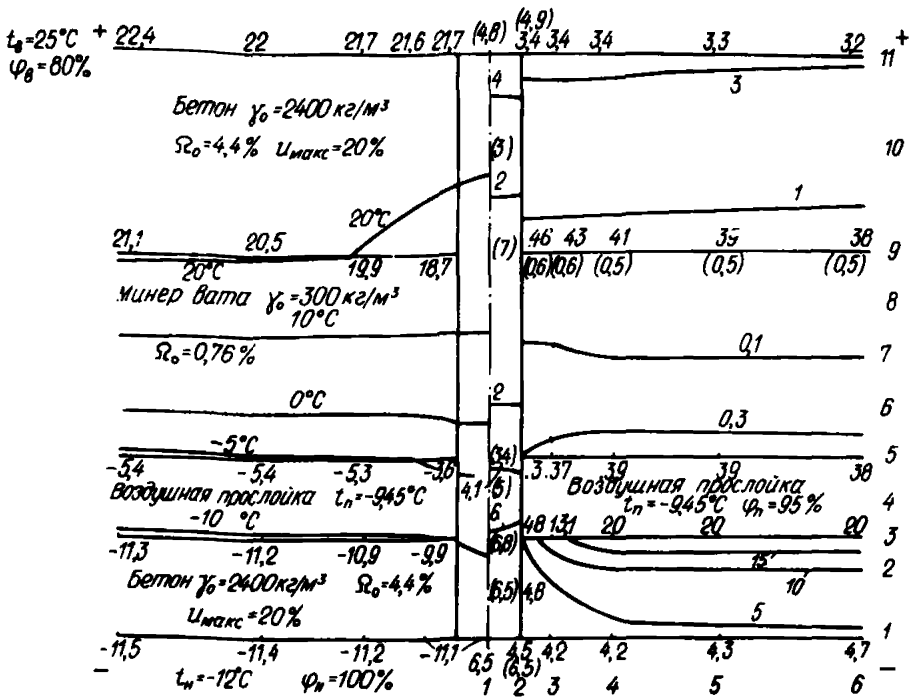 (4,9)
t_в=25°C + 22,4 22 21,7 21,6 21,7 (4,8) 3,4 3,4 3,4 3,3 3,2 +
φ_в=80% 11
4 3
Бетон γ₀=2400 кг/м³
Ω₀=4,4% u_макс=20% (3) 10
2 1
20°C
21,1 20,5 (7) 46 43 41 39 38 9
20°C 19,9 18,7 (0,6) (0,6) (0,5) (0,5) (0,5)
минер вата γ₀=300 кг/м³ 8
10°C
Ω₀=0,76% 0,1 7
0°C 2 6
0,3
-5°C (34) 5
-5,4 -5,4 -5,3 -3,6 .3 37 39 39 38
4,1 (5)
Воздушная прослойка t_п=-9,45°C Воздушная прослойка 4
t_п=-9,45°C φ_п=95%
-10 °C 6 48 13,1 20 20 20 3
-11,3 -11,2 -10,9 -9,9 (6,8) 15
10 2
Бетон γ₀=2400 кг/м³ Ω₀=4,4% (6,5) 4,8
u_макс=20% 5
1
-11,5 -11,4 -11,2 -11,1 6,5 4,5 4,2 4,2 4,3 4,7
(6,5)
− t_н=-12°C φ_н=100% 1 2 3 4 5 6 −